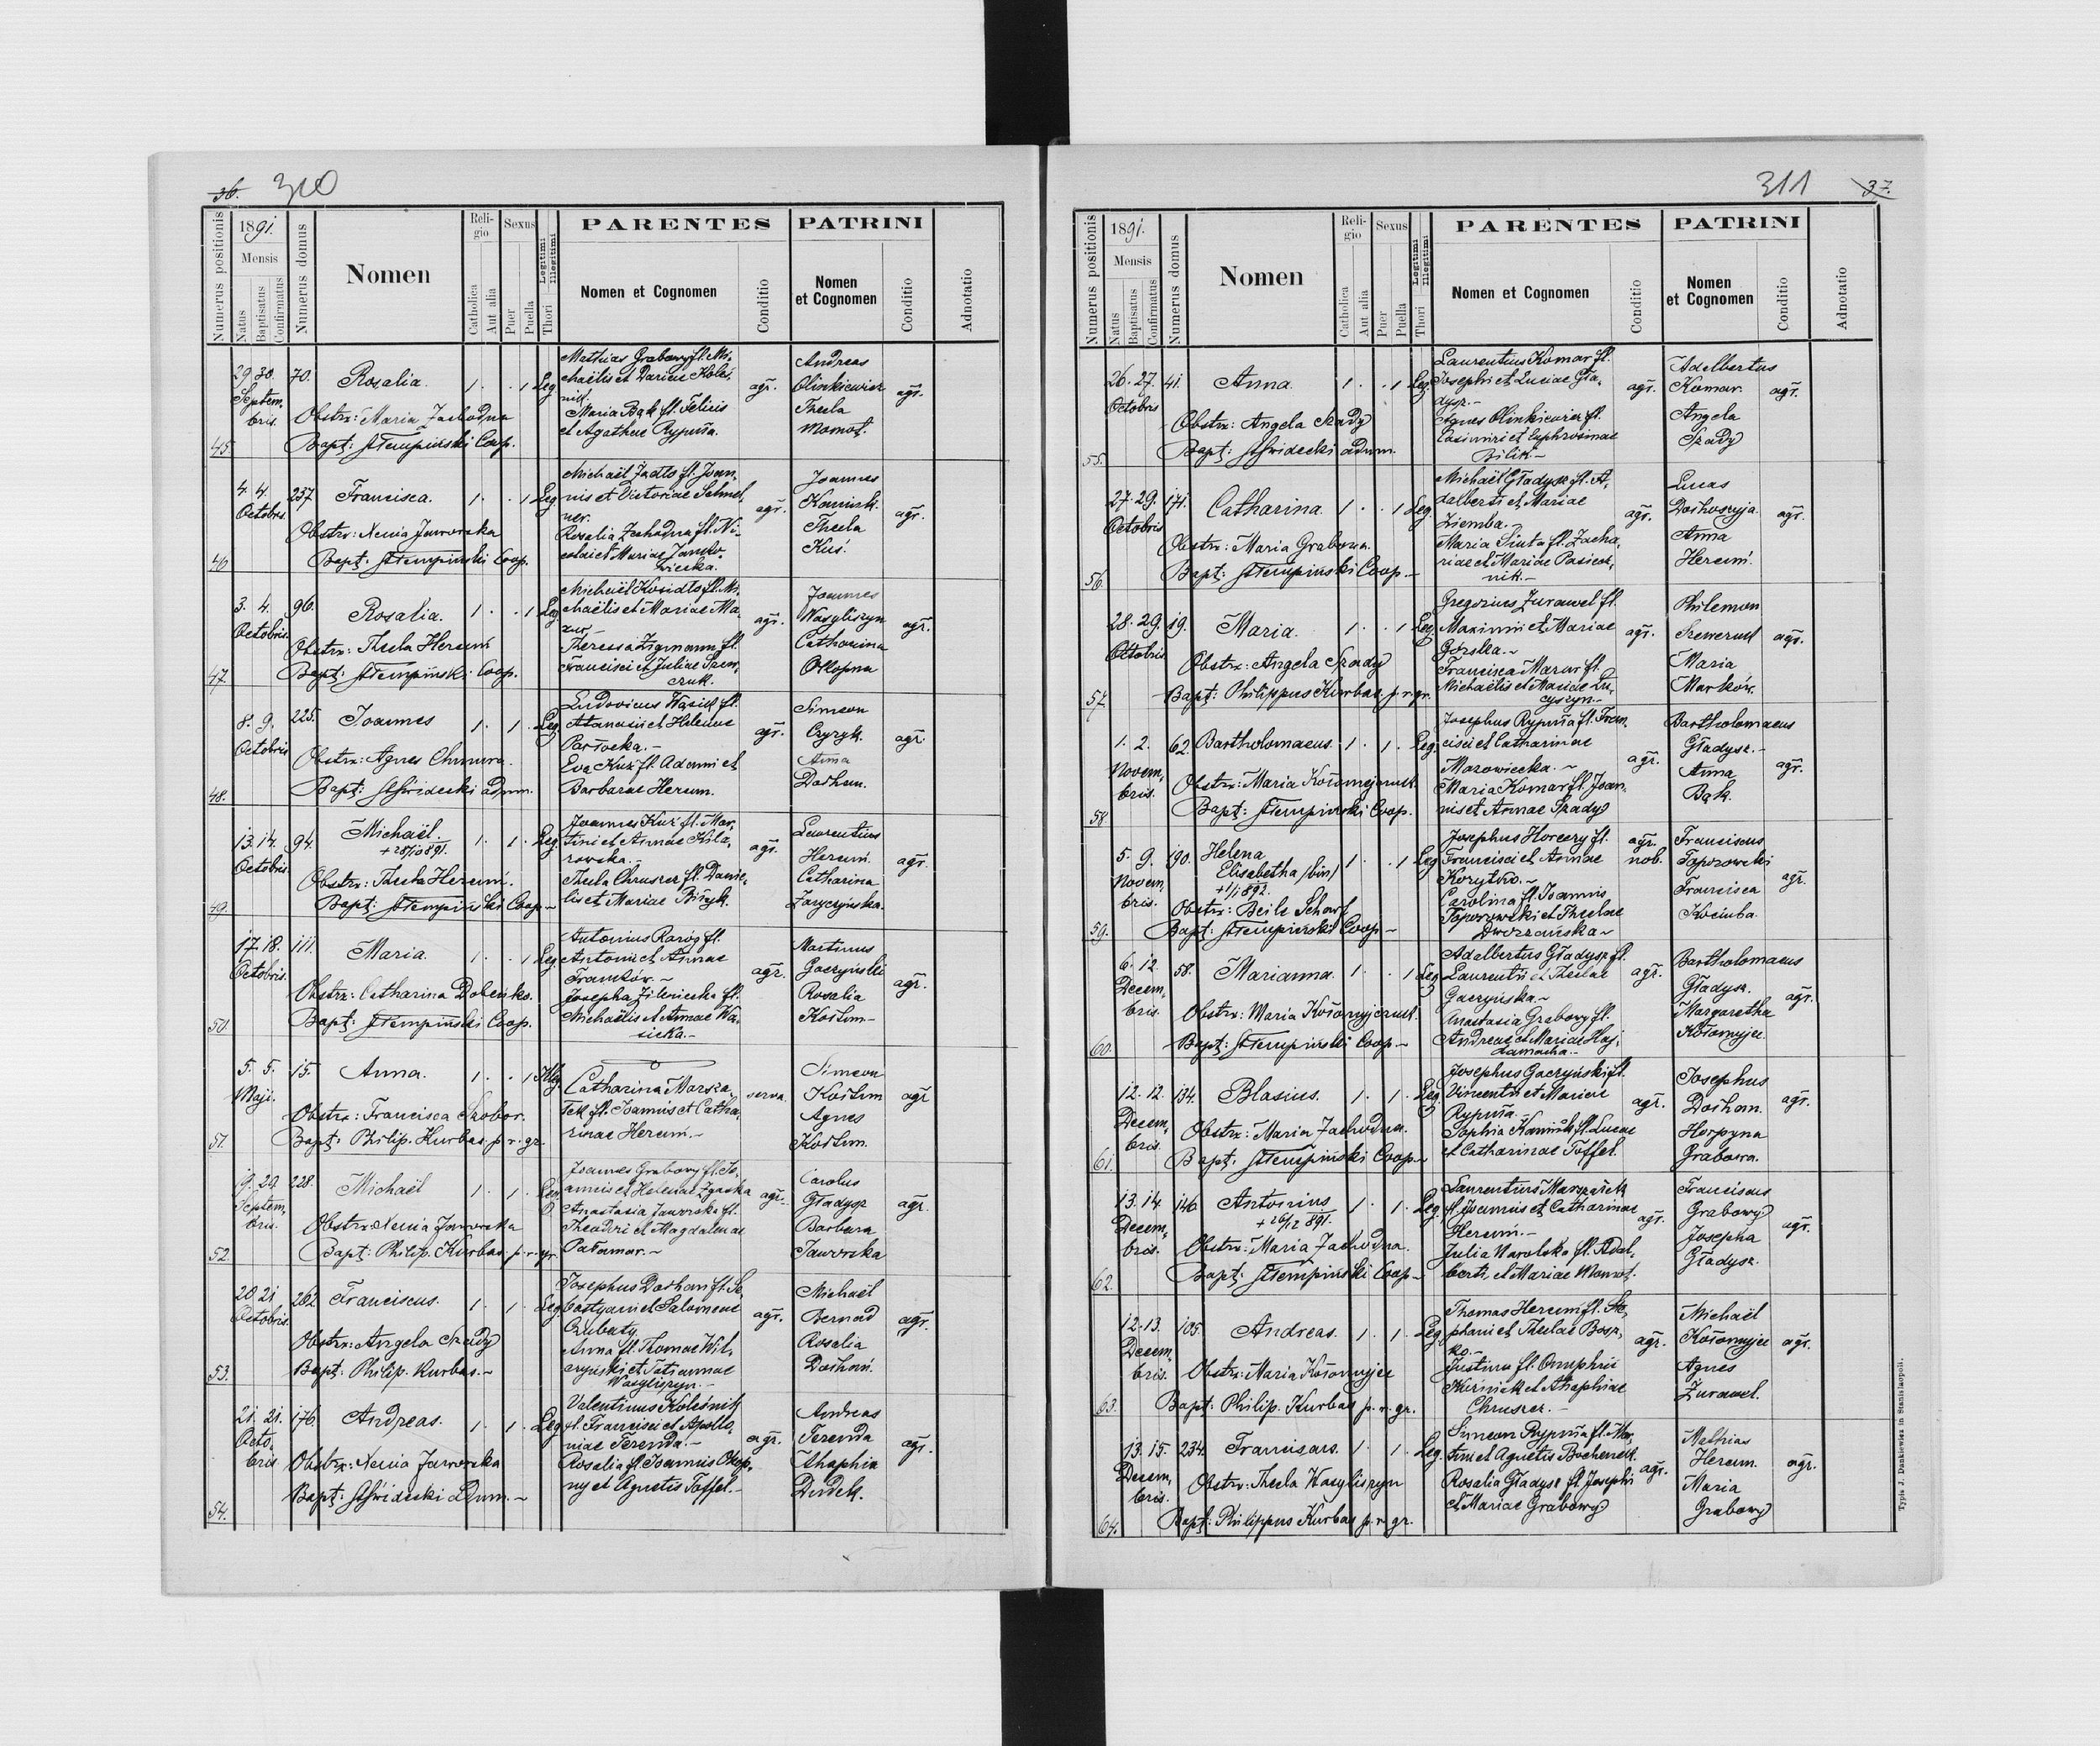 36. 310
Numerus positionis
1891.
Mensis
Natus
Baptisatus
Confirmatus
Numerus domus
Nomen
Religio
Catholica
Aut alia
Sexus
Puer
Puella
Thori
Legitimi
Illegitimi
PARENTES
Nomen et Cognomen
Conditio
PATRINI
Nomen et Cognomen
Conditio
Adnotatio
45. 29. 30. Septembris. 70. Rosalia. 1. . . 1 Leg.
Obstrx: Maria Zachodna
Bapt: Stempiński Coop.
Mathias Grabowy fl. Mi-
chaëlis et Dariae Koleś-
nik.
Maria Bąk fl. Felicis
et Agathae Rypuła.
agr.
Andreas
Olinkiewicz
Thecla
Momot.
agr.
46. 4. 4. Octobris. 237 Francisca. 1. . . 1 Leg.
Obstrx: Xenia Jaworska
Bapt: Stempiński Coop.
Michaël Zadto fl. Joan-
nis et Victoriae
Rosalia Zachodna fl. Ni-
colai et Mariae
agr.
Joannes
Kaminh.
Thecla
Kuś.
agr.
47. 3. 4. Octobris. 96. Rosalia. 1. . . 1 Leg.
Obstrx: Thecla Herum
Bapt: Stempiński Coop.
Michaël Kosidło fl. Mi-
chaëlis et Mariae Ma-
zur
Theressa Zigmann fl.
Francisci et Juliae Szew-
czuk.
agr.
Joannes
Wasyliszyn
Catharina
Okopna
agr.
48. 8. 9. Octobris 225. Joannes 1. . 1. Leg.
Obstrx: Agnes Chmura.
Bapt: Świdecki adm.
Ludovicus Wąsik fl.
Atanasii et Helenae
Eva Kuź fl. Adami et
Barbarae Herum.
agr.
Simeon
Czyzyk.
Anna
Dorhan.
agr.
49. 13. 14. Octobris. 94. Michaël. 1. . 1. Leg.
+ 28/10 891.
Obstrx: Thecla Herum.
Bapt: Stempiński Coop
Joannes Kuź fl. Mar-
tini et Annae Hila-
rowska.
Thecla Chruszcz fl. Danie-
lis et Mariae
agr.
Laurentius
Herum.
Catharina
Zaryczyńska.
agr.
50. 17. 18. Octobris. 111. Maria. 1. . . 1 Leg.
Obstrx: Catharina Dobeńko.
Bapt: Stempiński Coop.
Antonius Raróg fl.
Antonii et Annae
Franków.
Josepha Zileniecka fl.
Michaëlis et Annae Wa-
sicka.
agr.
Martinus
Gaczyński
Rosalia
Kotłun
agr.
51. 5. 5. Maji. 15. Anna. 1. . . 1 Illeg.
Obstrx: Francisca Szobor.
Bapt: Philip. Kurbas p. r. gr.
Catharina Marsza-
łek fl. Joannis et Catha-
rinae Herum.
serva.
Simeon
Kotłun
Agnes
Kotłun.
agr
52. 19. 20. Septembris. 228. Michaël 1. . 1. Leg.
Obstrx: Xenia Jaworska
Bapt: Philip. Kurbas p. r. gr.
Joannes Grabowy fl. Jo-
annis et Helenae Zgaska
Anastasia Jaworska fl.
Theodri et Magdalenae
Pałamar.
agr.
Carolus
Gładysz
Barbara
Jaworska
agr.
53. 20. 21 Octobris. 262 Franciscus. 1. . 1. Leg.
Obstrx: Angela Szady
Bapt: Philip. Kurbas.
Josephus Dorhan fl. Se-
bastyani et Salomeae
Czubaty.
Anna fl. Thomae Wil-
czyński et Tatiannae
Wasyliszyn.
agr.
Michaël
Bernad
Rosalia
Dorhan.
agr.
54. 21. 21. Octobris 176. Andreas. 1. . 1. Leg.
Obstrx: Xenia Jaworska
Bapt: Świdecki Adm.
Valentinus Koleśnik
fl. Francisci et Apollo-
niae Ferenda.
Rosalia fl. Joannis Okop-
ny et Agnetis Toffel.
agr.
Andreas
Ferenda
Athaphia
Dudek.
agr.
311 37.
Numerus positionis
1891.
Mensis
Natus
Baptisatus
Confirmatus
Numerus domus
Nomen
Religio
Catholica
Aut alia
Sexus
Puer
Puella
Thori
Legitimi
Illegitimi
PARENTES
Nomen et Cognomen
Conditio
PATRINI
Nomen et Cognomen
Conditio
Adnotatio
55. 26. 27. Octobris 41. Anna. 1. . . 1 Leg.
Obstrx: Angela Szady
Bapt: Świdecki adm.
Laurentius Komar fl.
Josephi et Luciae Gła-
dysz.
Agnes Olinkiewicz fl.
Casimiri et Euphrosinae
Bilik
agr.
Adelbertus
Komar.
Angela
Szady
agr.
56. 27. 29. Octobris 171. Catharina. 1. . . 1 Leg.
Obstrx: Maria Grabowa.
Bapt: Stempiński Coop
Michaël Gładysz fl. A-
dalberti et Mariae
Ziemba.
Maria Siuta fl. Zacha-
riae et Mariae Pasiecz-
nik.
agr.
Lucas
Anna
Herum.
agr.
57. 28. 29. Octobris 19. Maria. 1. . . 1 Leg.
Obstrx: Angela Szady
Bapt: Philippus Kurbas p. r. gr.
Gregorius Żurawel fl.
Maximi et Mariae
Gorska.
Francisca Mazur fl.
Michaëlis et Mariae Lu-
cyszyn.
agr.
Philemon
Szewczuk
Maria
Marków.
agr.
58. 1. 2. Novembris. 62. Bartholomaeus. 1. . 1. Leg.
Obstrx: Maria Kołomyjczuk.
Bapt: Stempiński Coop.
Josephus Rypuła fl. Fran-
cisci et Catharinae
Mazowiecka.
Maria Komar fl. Joan-
nis et Annae Szady
agr.
Bartholomaeus
Gładysz.
Anna
Bąk.
agr.
59. 5. 9. Novembris. 190. Helena 1. . . 1 Leg
Elisabetha (bin)
+ 1/1 892.
Obstrx: Beile Scharf
Bapt: Stempiński Coop
Josephus Horeczy fl.
Francisci et Annae
Korytko.
Carolina fl. Joannis
Toporowski et Theclae
Dworzańska
agr. nob.
Franciscus
Toporowski
Francisca
Kociuba.
agr.
60. 6. 12. Decembris. 58. Marianna. 1. . . 1 Leg.
Obstrx: Maria Kołomyjczuk.
Bapt: Stempiński Coop
Adalbertus Gładysz fl.
Laurentii et Theclae
Gaczyńska
Anastasia Grabowy fl.
Andreae et Mariae Haj-
damacha.
agr.
Bartholomaeus
Gładysz.
Margaretha
Kołomyjec.
agr.
61. 12. 12. Decembris. 134. Blasius. 1. . 1. Leg.
Obstrx: Maria Zachodna.
Bapt: Stempiński Coop
Josephus Gaczyński fl.
Vincentii et Mariae
Rypuła.
Sophia Kaminh fl. Lucae
et Catharinae Toffel.
agr.
Josephus
Dorhan.
Horpyna
Grabowa.
agr.
62. 13. 14. Decembris. 146 Antonius 1. . 1. Leg.
+ 26/12 891.
Obstrx: Maria Zachodna.
Bapt: Stempiński Coop
Laurentius Marszałek
fl. Joannis et Catharinae
Herum.
Julia Narolska fl. Adal-
berti et Mariae Momot.
agr.
Franciscus
Grabowy
Josepha
Gładysz.
agr.
63. 12. 13. Decembris. 105. Andreas. 1. . 1. Leg.
Obstrx: Maria Kołomyjec
Bapt: Philip. Kurbas p. r. gr.
Thomas Herum fl. Ste-
phani et Theclae Bosz-
ko.
Justina fl. Onuphrii
et Ahaphiae
Chruszcz.
agr.
Michaël
Kołomyjec
Agnes
Żurawel.
agr.
64. 13. 15. Decembris. 234. Franciscus. 1. . 1. Leg.
Obstrx: Thecla Wasyliszyn
Bapt: Philippus Kurbas p. r. gr.
Simeon Rypuła fl. Mar-
tini et Agnetis Bochenek.
Rosalia Gładysz fl. Josephi
et Mariae Grabowy
agr.
Mathias
Herum.
Maria
Grabowy
agr.
Typis J. Dankiewicz in Stanislaopoli.